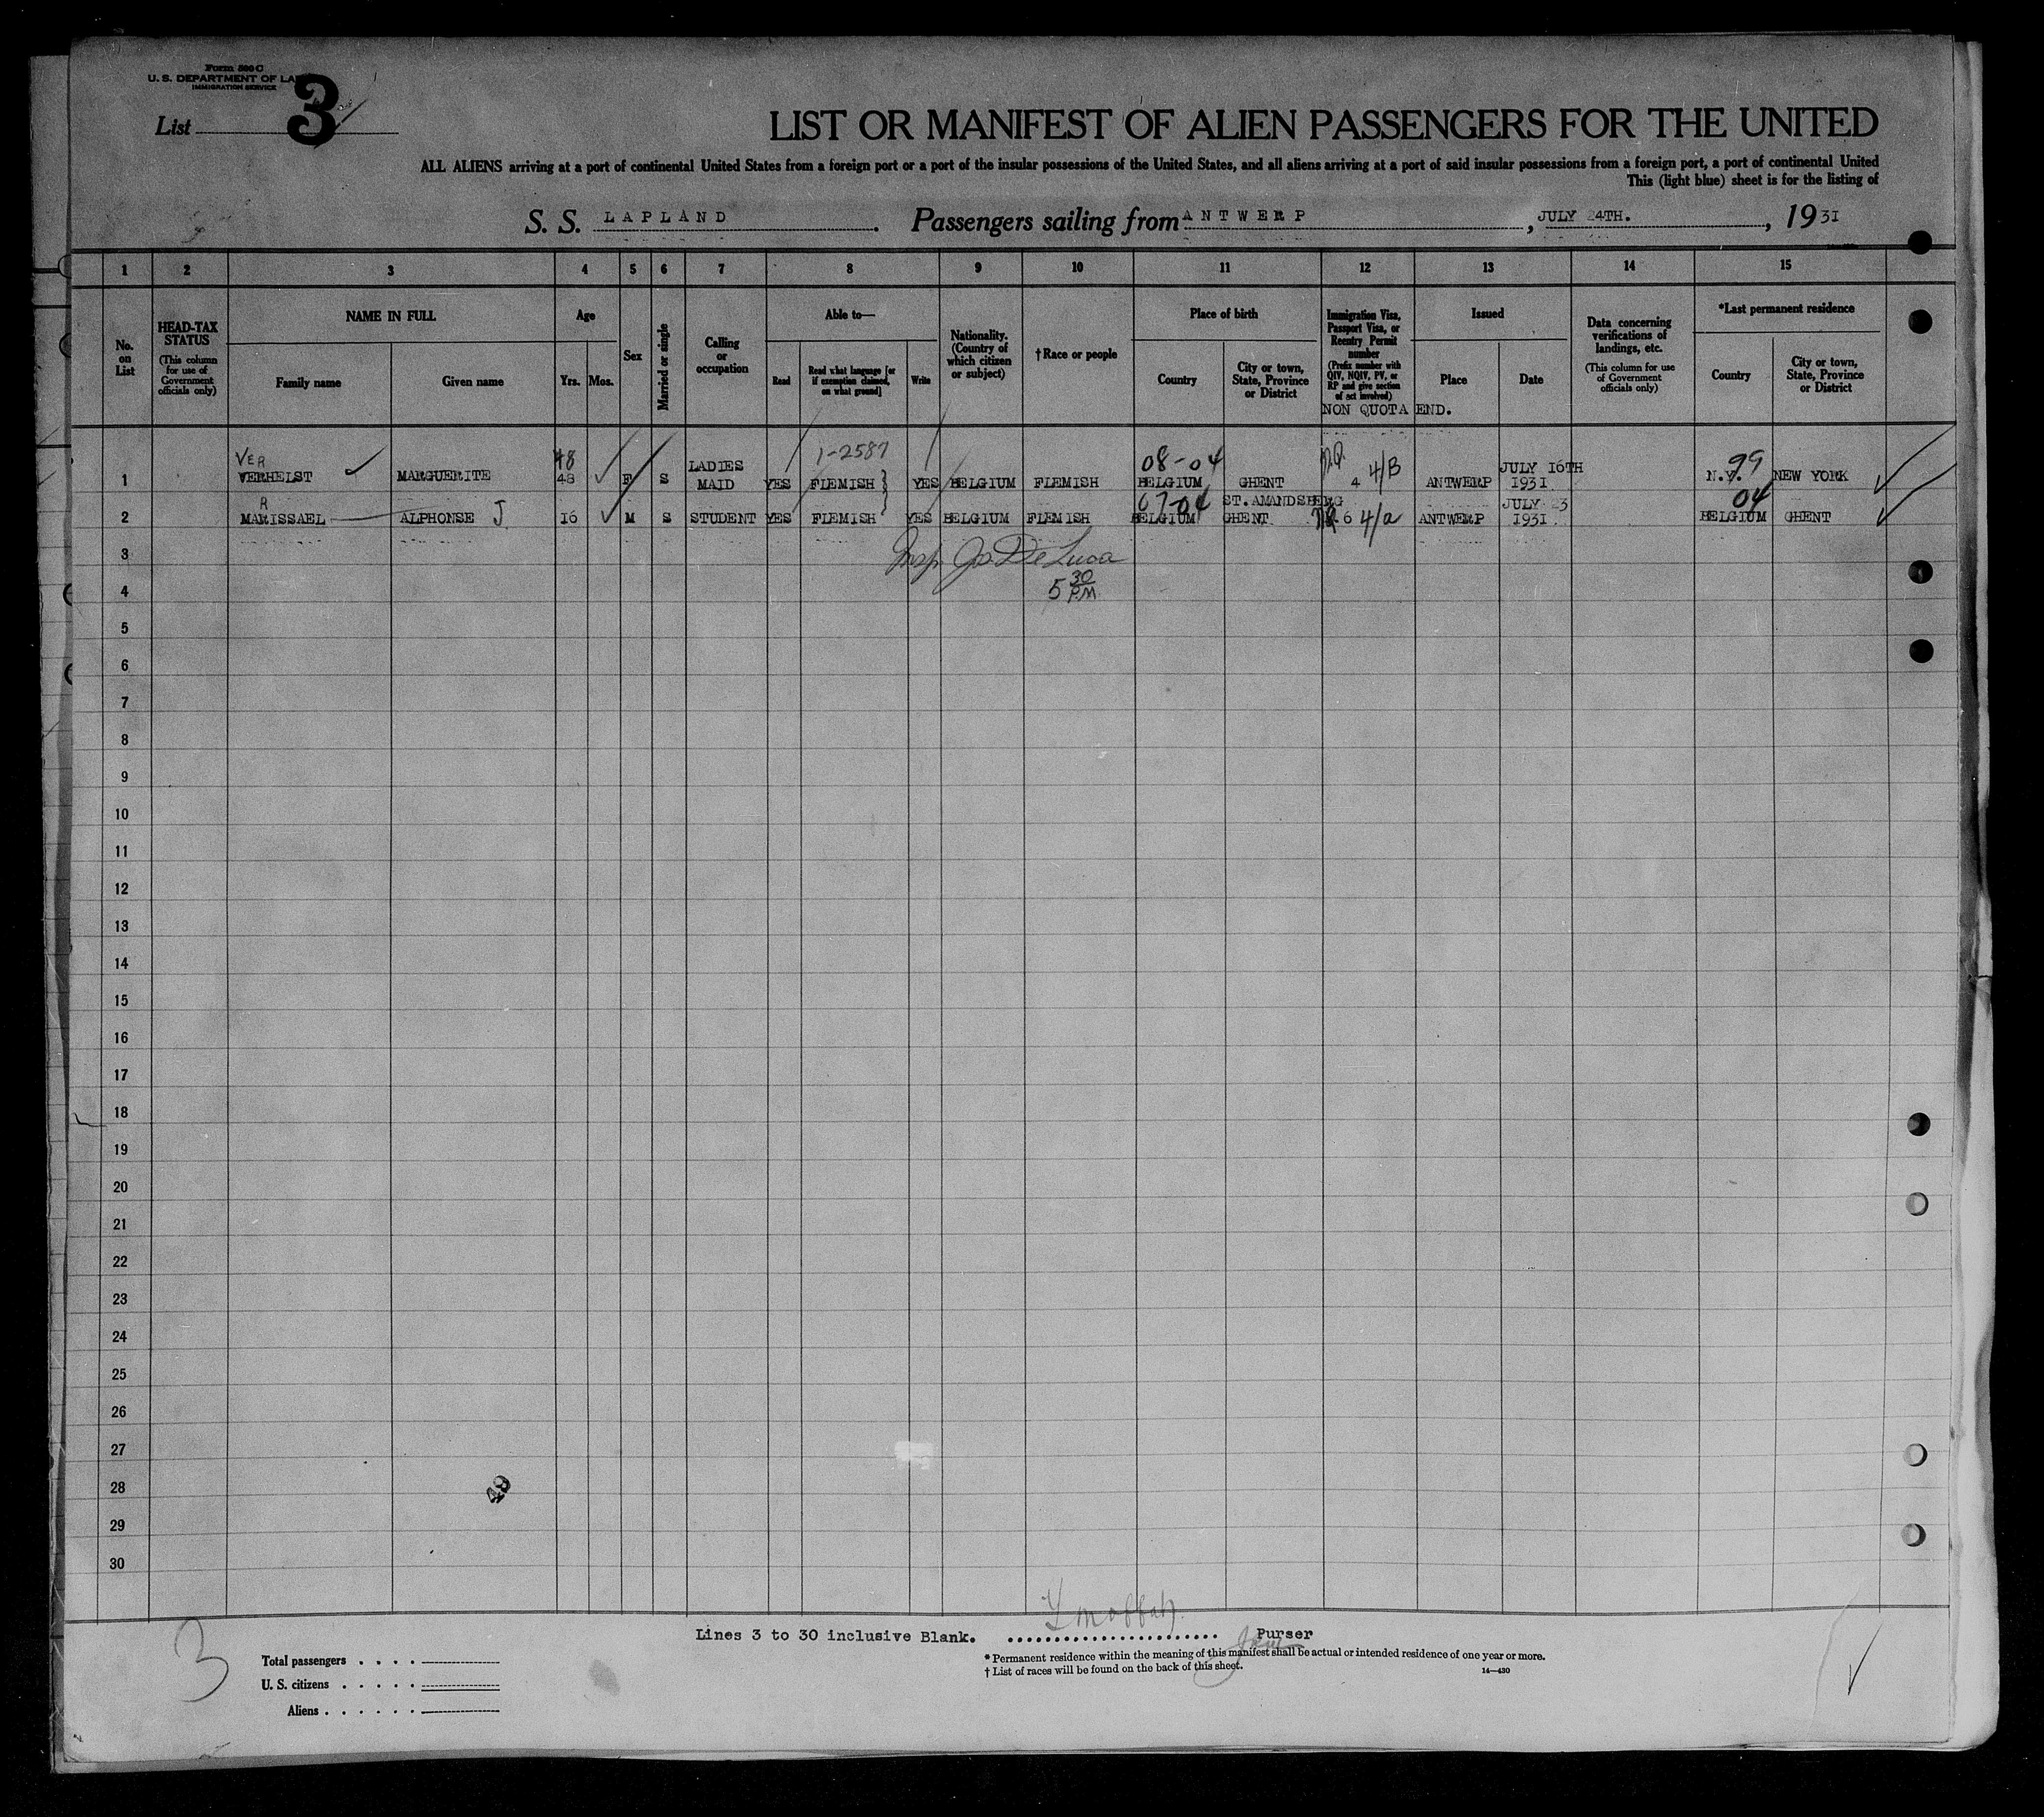 Form 500 C
U. S. DEPARTMENT OF LA
IMMIGRATION SERVICE
List 3
LIST OR MANIFEST OF ALIEN PASSENGERS FOR THE UNITED
ALL ALIENS arriving at a port of continental United States from a foreign port or a port of the insular possessions of the United States, and all aliens arriving at a port of said insular possessions from a foreign port, a port of continental United
This (light blue) sheet is for the listing of
S. S. LAPLAND. Passengers sailing from ANTWERP, JULY 24TH., 1931
1 2 3 4 5 6 7 8 9 10 11 12 13 14 15
No. on List
HEAD-TAX STATUS
(This column for use of Government officials only)
NAME IN FULL
Family name
Given name
Age
Yrs. Mos.
Sex
Married or single
Calling or occupation
Able to—
Read
Read what language [or if exemption claimed, on what ground]
Write
Nationality. (Country of which citizen or subject)
† Race or people
Place of birth
Country
City or town, State, Province or District
Immigration Visa, Passport Visa, or Reentry Permit number
(Prefix number with QIV, NQIV, PV, or RP and give section of act involved)
NON QUOTA END.
Issued
Place
Date
Data concerning verifications of landings, etc.
(This column for use of Government officials only)
*Last permanent residence
Country
City or town, State, Province or District
VER 48 1-2587 08-04 4/B 99
1 VERHELST MARGUERITE 48 F S LADIES MAID YES FLEMISH YES BELGIUM FLEMISH BELGIUM GHENT 4 ANTWERP JULY 16TH 1931 N.Y. NEW YORK
R 07-04 04
2 MARISSAEL ALPHONSE J 16 M S STUDENT YES FLEMISH YES BELGIUM FLEMISH BELGIUM ST. AMANDSBERG GHENT 6 4/a ANTWERP JULY 23 1931 BELGIUM GHENT
3 Insp. Jos De Luca
4 5 30 P.M.
5
6
7
8
9
10
11
12
13
14
15
16
17
18
19
20
21
22
23
24
25
26
27
28
29
30
48
Lines 3 to 30 inclusive Blank. Purser
3
Total passengers
U. S. citizens
Aliens
* Permanent residence within the meaning of this manifest shall be actual or intended residence of one year or more.
† List of races will be found on the back of this sheet.
14—430